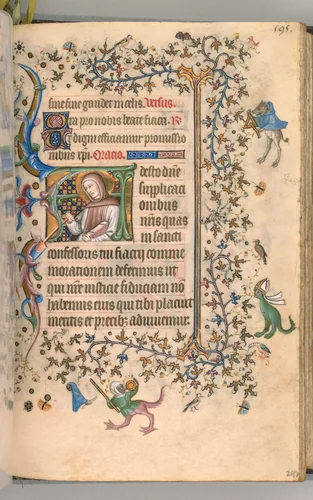 595.
sine fine gaudere in celis. Versus.
Ora pro nobis beate fiacri. R
Ut digni efficiamur promissio
nibus xpi. Oracio.
Adesto dne
supplicati
onibus
nris quas
in sancti
confessoris tui fiacrii comme
morationem deferimus ut
qui nre iusticie fiduciam nō
habemus eius qui tibi placuit
meritis et precibz adiuuemur.